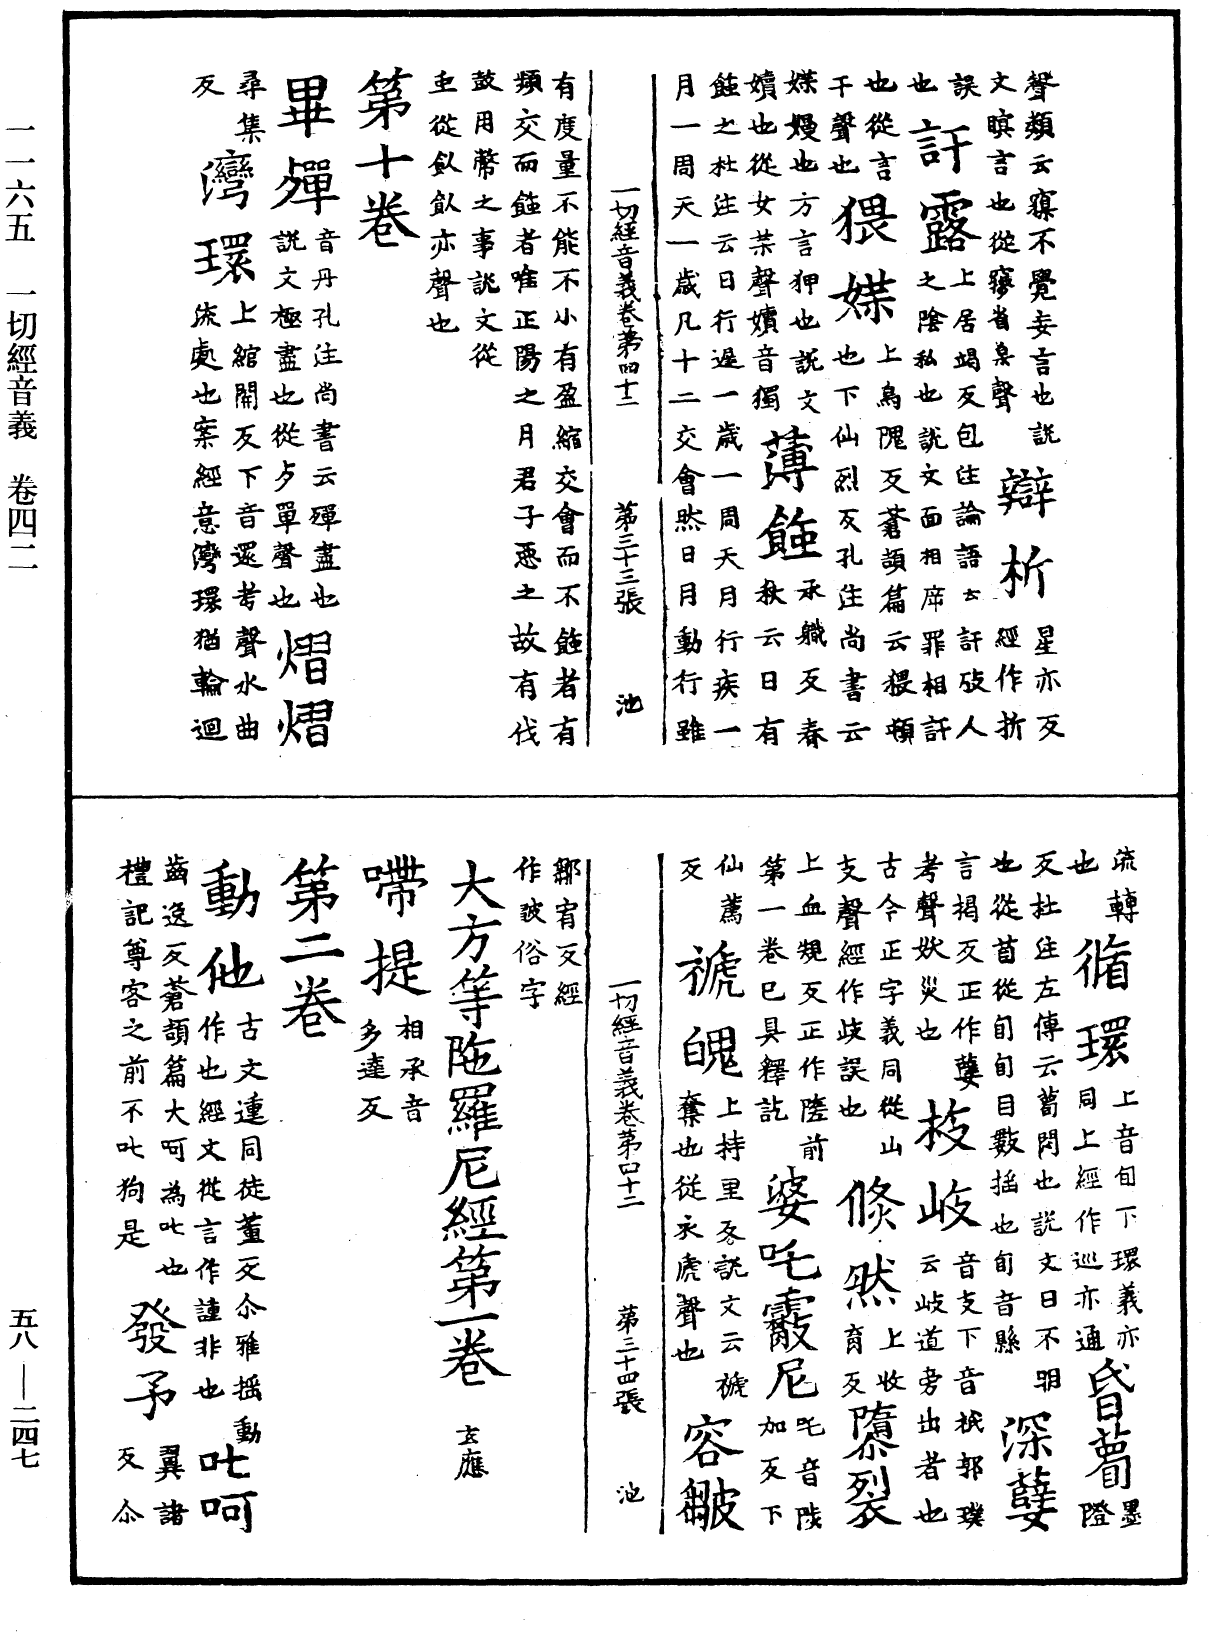 聲類云寱不覺妄言也說
文瞑言也從㝱省臬聲
辯析
星亦反
經作折
誤
也
訐露
上居竭反包注論語云訐攻人
之陰私也說文面相㡿罪相訐
也從言
干聲也
猥媟
上烏隗反蒼頡篇云猥頓
也下仙烈反孔注尚書云
媟嫚也方言狎也說文
嬻也從女枼聲嬻音獨
薄蝕
承軄反春
秋云日有
蝕之杜注云日行遲一歲一周天月行疾一
月一周天一歲凡十二交會然日月動行雖
一切經音義卷第四十二 第三十三張 池
有度量不能不小有盈縮交會而不蝕者有
頻交而蝕者唯正陽之月君子惡之故有伐
鼓用幣之事說文從
虫從飤飤亦聲也
第十卷
畢殫
音丹孔注尚書云殫盡也
說文極盡也從歺單聲也
熠熠
尋集
反
灣環
上綰關反下音還考聲水曲
流處也案經意灣環猶輪迴
流轉
也
循環
上音旬下環義亦
同上經作巡亦通
昏瞢
墨
瞪
反杜注左傳云瞢悶也說文目不明
也從苜從旬旬目數搖也旬音縣
深孽
言揭反正作孼
考聲妖災也
枝岐
音支下音祇郭璞
云岐道旁出者也
古今正字義同從山
支聲經作歧誤也
倏然
上收
育反
隳裂
上血規反正作隓前
第一卷已具釋訖
婆吒霰尼
吒音陟
加反下
仙薦
反
褫魄
上持里反說文云褫
奪也從衣虒聲也
容皺
一切經音義卷第四十二 第三十四張 池
鄒宥反經
作皱俗字
大方等陁羅尼經第一卷 玄應
嚪提
相承音
多達反
第二卷
動他
古文連同徒董反尒雅揺動
作也經文從言作諥非也
叱呵
齒逸反蒼頡篇大呵為叱也
禮記尊客之前不叱狗是
發予
翼諸
反尒
一一六五 一切經音義 卷四二
五八——二四七